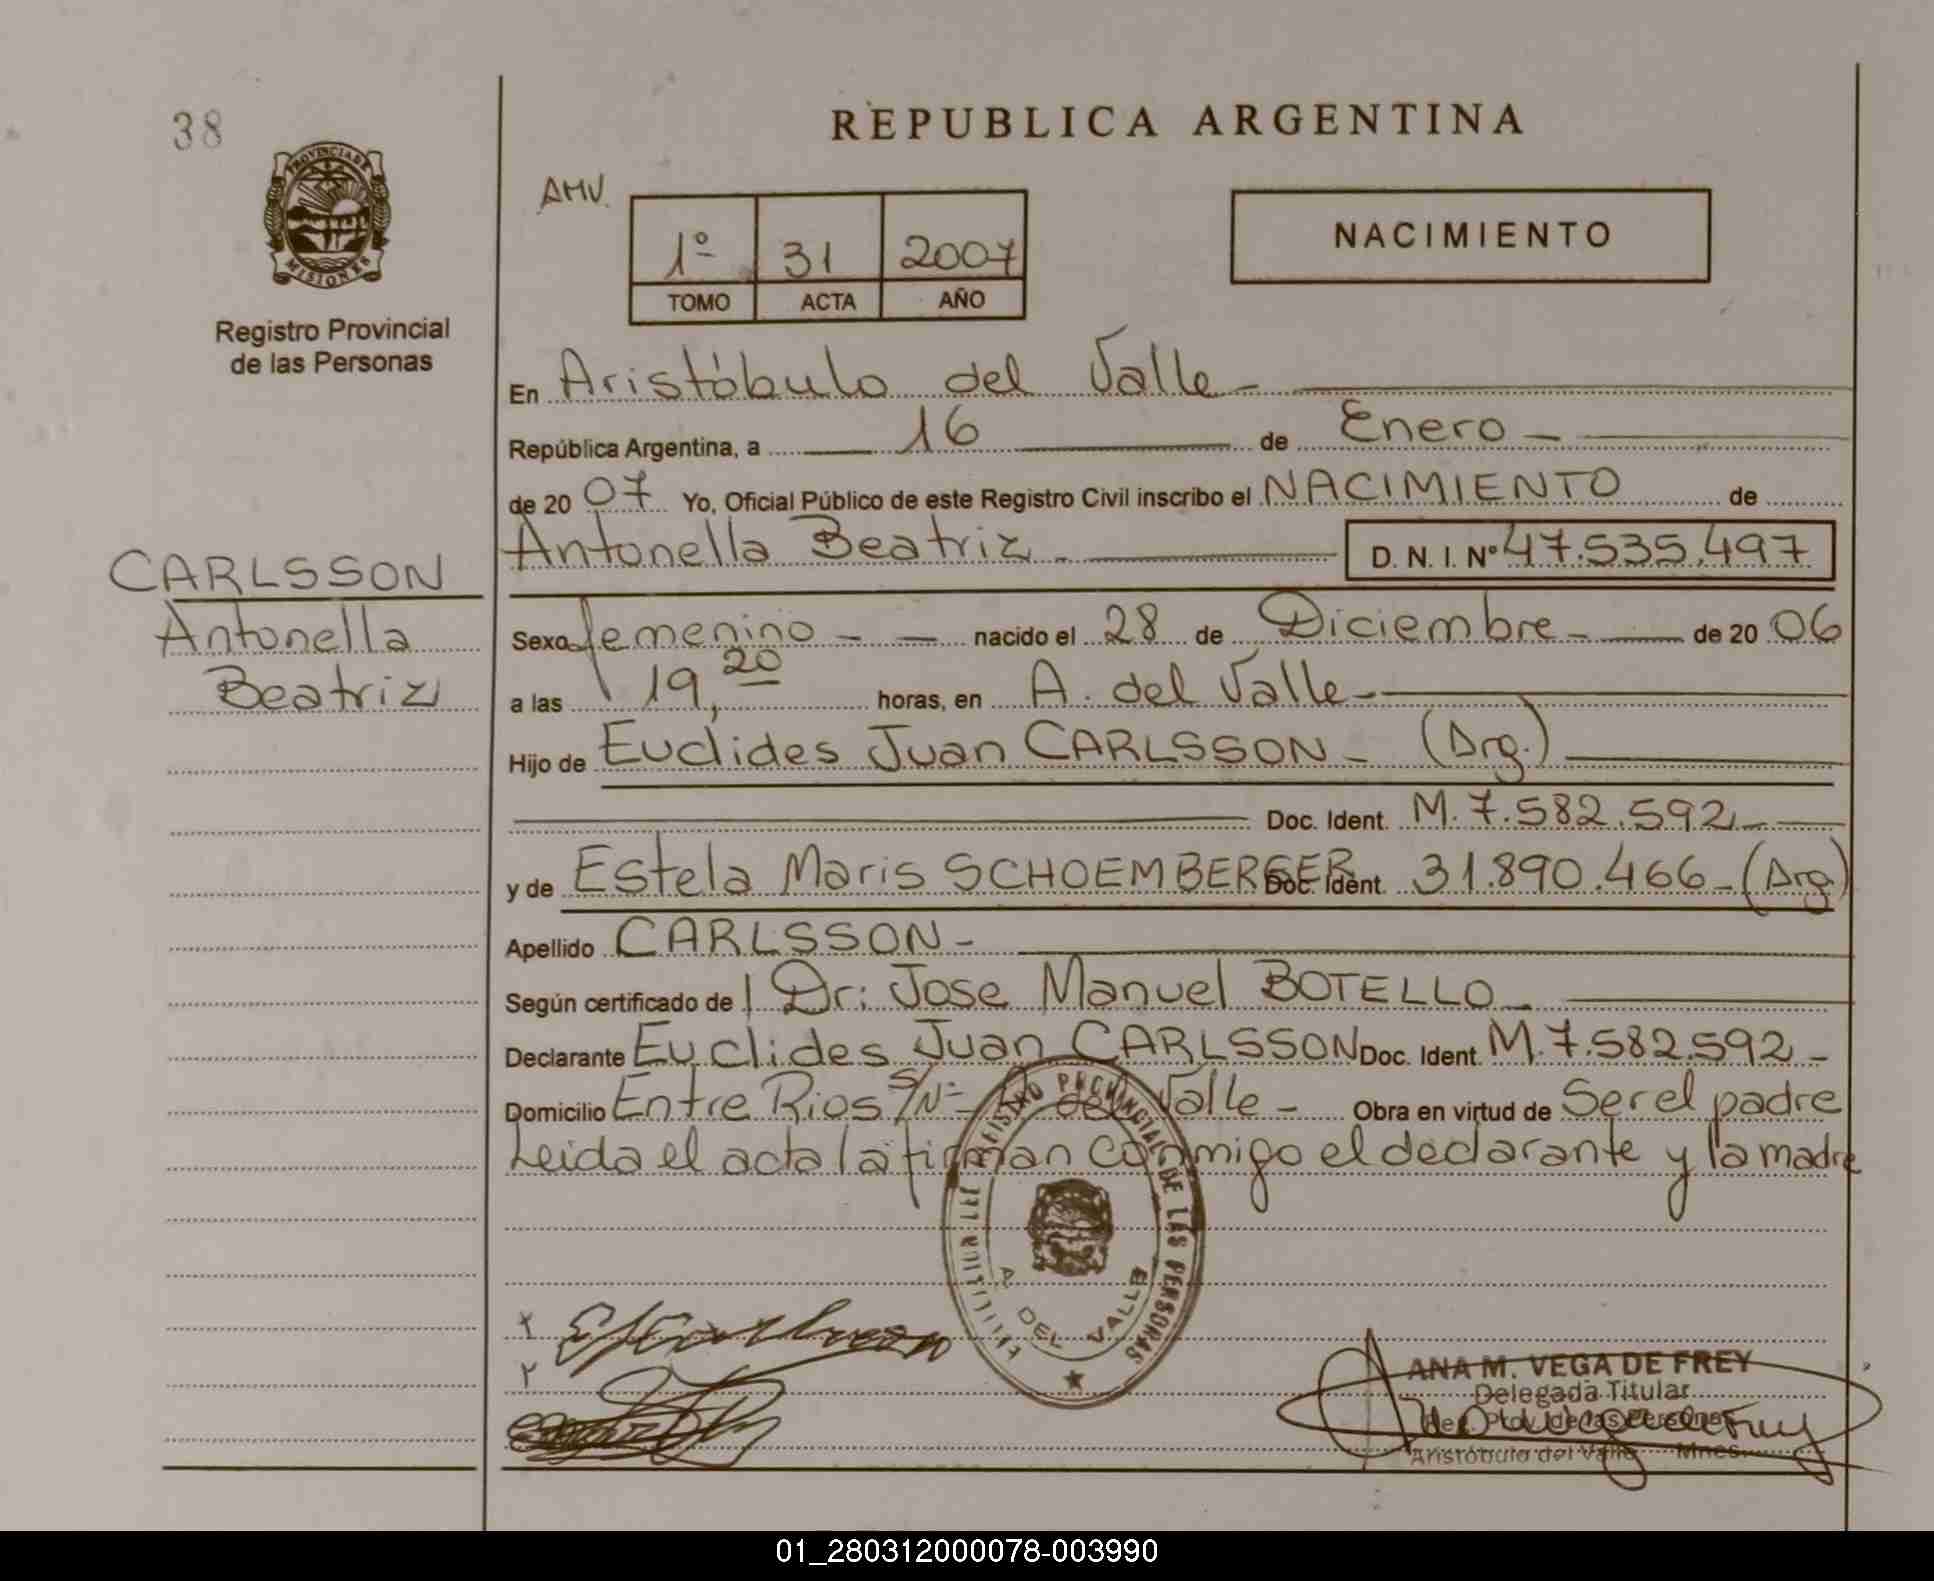 38
REPUBLICA ARGENTINA
PROVINCIA DE
MISIONES
Registro Provincial
de las Personas
AMV.
1º 31 2007
TOMO ACTA AÑO
NACIMIENTO
En Aristóbulo del Valle
República Argentina, a 16 de Enero
de 20 07 Yo, Oficial Público de este Registro Civil inscribo el NACIMIENTO de
Antonella Beatriz D. N. I. Nº 47.535.497
CARLSSON
Antonella
Beatriz
Sexo femenino nacido el 28 de Diciembre de 20 06
a las 19,20 horas, en A. del Valle
Hijo de Euclides Juan CARLSSON (Arg.)
Doc. Ident. M. 7.582.592
y de Estela Maris SCHOEMBERGER Doc. Ident. 31.890.466 (Arg)
Apellido CARLSSON
Según certificado del Dr: Jose Manuel BOTELLO
Declarante Euclides Juan CARLSSON Doc. Ident. M. 7.582.592
Domicilio Entre Rios S/Nº A del Valle Obra en virtud de Ser el padre
Leida el acta la firman conmigo el declarante y la madre
REGISTRO PROVINCIAL DE LAS PERSONAS
A DEL VALLE
ANA M. VEGA DE FREY
Delegada Titular
Reg. Prov. de las Personas
Aristóbulo del Valle Mnes.
01_280312000078-003990